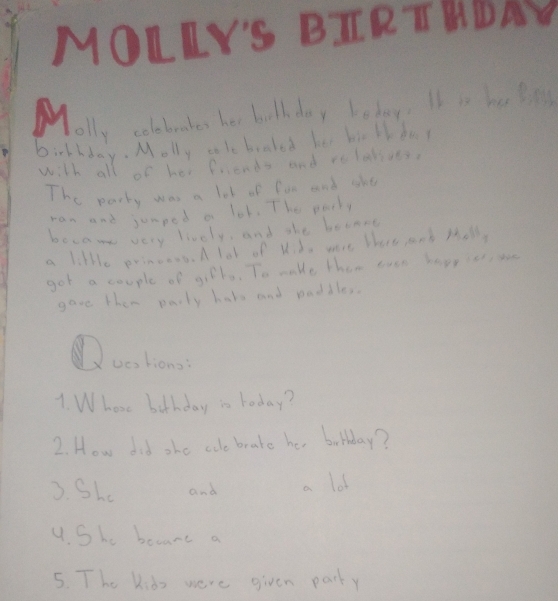 MOLLY'S BIRTHDAY
Molly celebrates her birthday today. It is her
birthday. Molly celebrated her birthday
with all of her friends and relatives.
The party was a lot of fun and she
ran and jumped a lot. The party
became very lively, and she became
a little princess. A lot of kids were there and Molly
got a couple of gifts. To make them even happier, we
gave them party hats and paddles.
Questions:
1. Whose bithday is today?
2. How did she celebrate her birthday?
3. She and a lot
4. She became a
5. The kids were given party